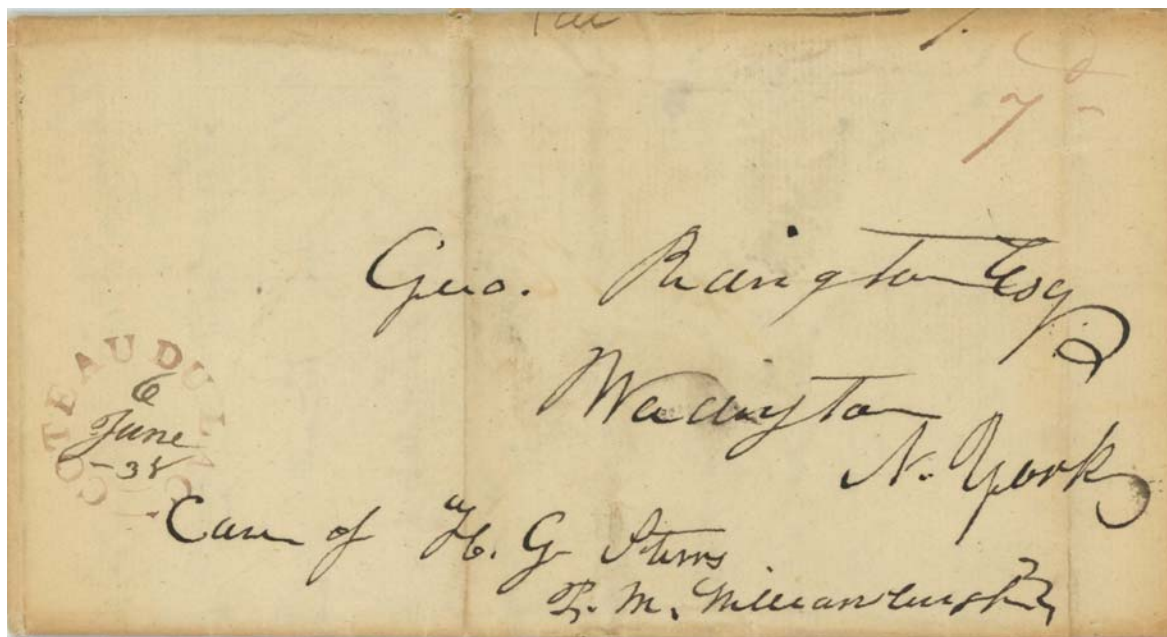 7
Geo. Redington Esq
Wadington
N. York
COTEAU DU LAC
6
June
-38
Care of H. G. Sterns
P. M. Williamsburgh